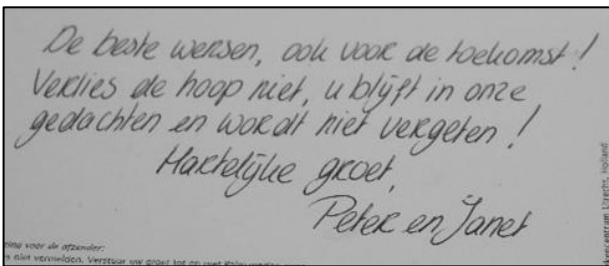 De beste wensen, ook voor de toekomst!
Verlies de hoop niet, u blijft in onze
gedachten en wordt niet vergeten!
Hartelijke groet,
Peter en Janet
voor de afzender:
niet vermelden. Verstuur uw groet tot en met
Utrecht, Holland